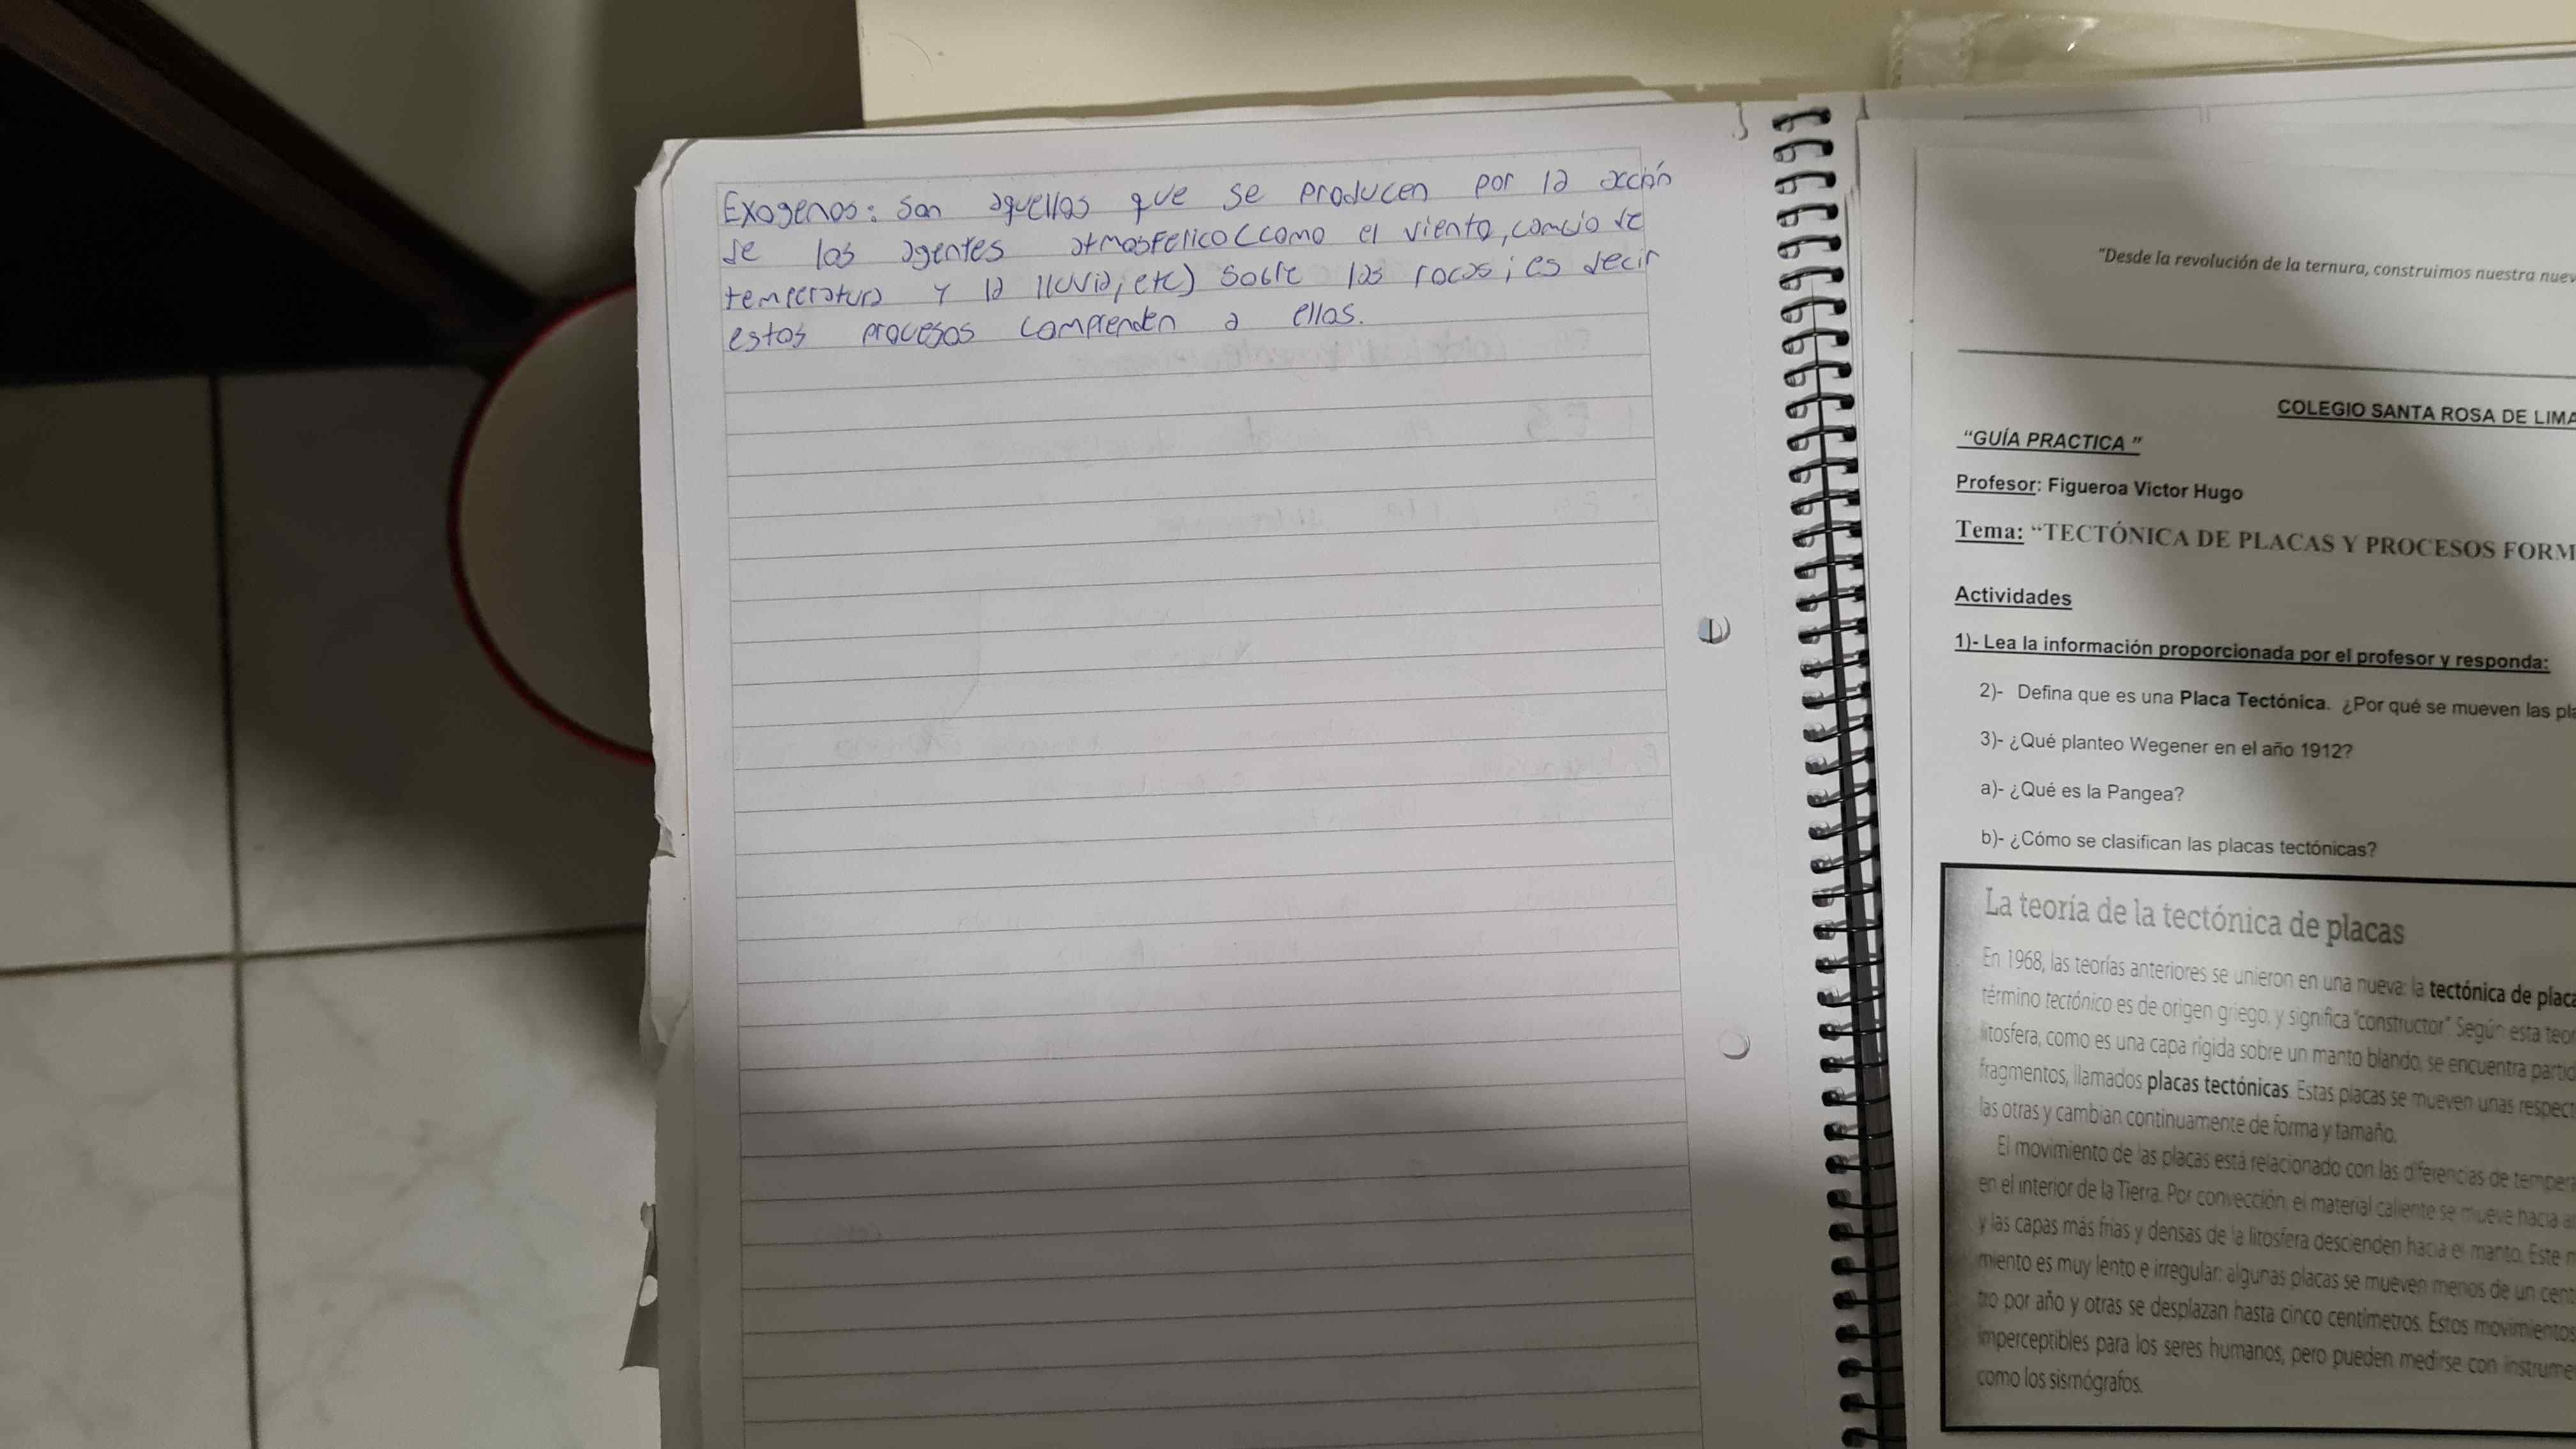 Exogenos: son aquellos que se producen por la acción
de los agentes atmosferico (como el viento, cambio de
temperatura y la lluvia, etc) sobre las rocas; es decir
estos procesos comprenden a ellos.
"Desde la revolución de la ternura, construimos nuestra nuev
COLEGIO SANTA ROSA DE LIMA
"GUÍA PRACTICA"
Profesor: Figueroa Victor Hugo
Tema: "TECTÓNICA DE PLACAS Y PROCESOS FORM
Actividades
1)- Lea la información proporcionada por el profesor y responda:
2)- Defina que es una Placa Tectónica. ¿Por qué se mueven las pla
3)- ¿Qué planteo Wegener en el año 1912?
a)- ¿Qué es la Pangea?
b)- ¿Cómo se clasifican las placas tectónicas?
La teoría de la tectónica de placas
En 1968, las teorías anteriores se unieron en una nueva: la tectónica de placa
término tectónico es de origen griego, y significa "constructor". Según esta teor
litosfera, como es una capa rígida sobre un manto blando, se encuentra partid
fragmentos, llamados placas tectónicas. Estas placas se mueven unas respect
las otras y cambian continuamente de forma y tamaño.
El movimiento de las placas está relacionado con las diferencias de tempera
en el interior de la Tierra. Por convección, el material caliente se mueve hacia
y las capas más frías y densas de la litosfera descienden hacia el manto. Este
miento es muy lento e irregular: algunas placas se mueven menos de un cent
tro por año y otras se desplazan hasta cinco centímetros. Estos movimientos
imperceptibles para los seres humanos, pero pueden medirse con instrume
como los sismógrafos.